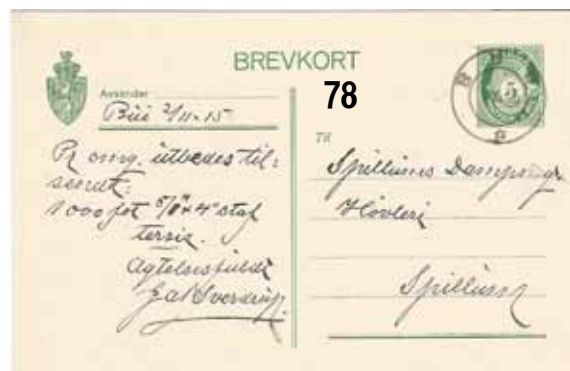 BREVKORT
78
Avsender
Búi 2/11-15
Til
Pr omg. utbedes til:
sendt:
1000 fot 5/8"x4" staf
Agtelsesfuldt
Spillums Dampsag
Høvleri
Spillum
5